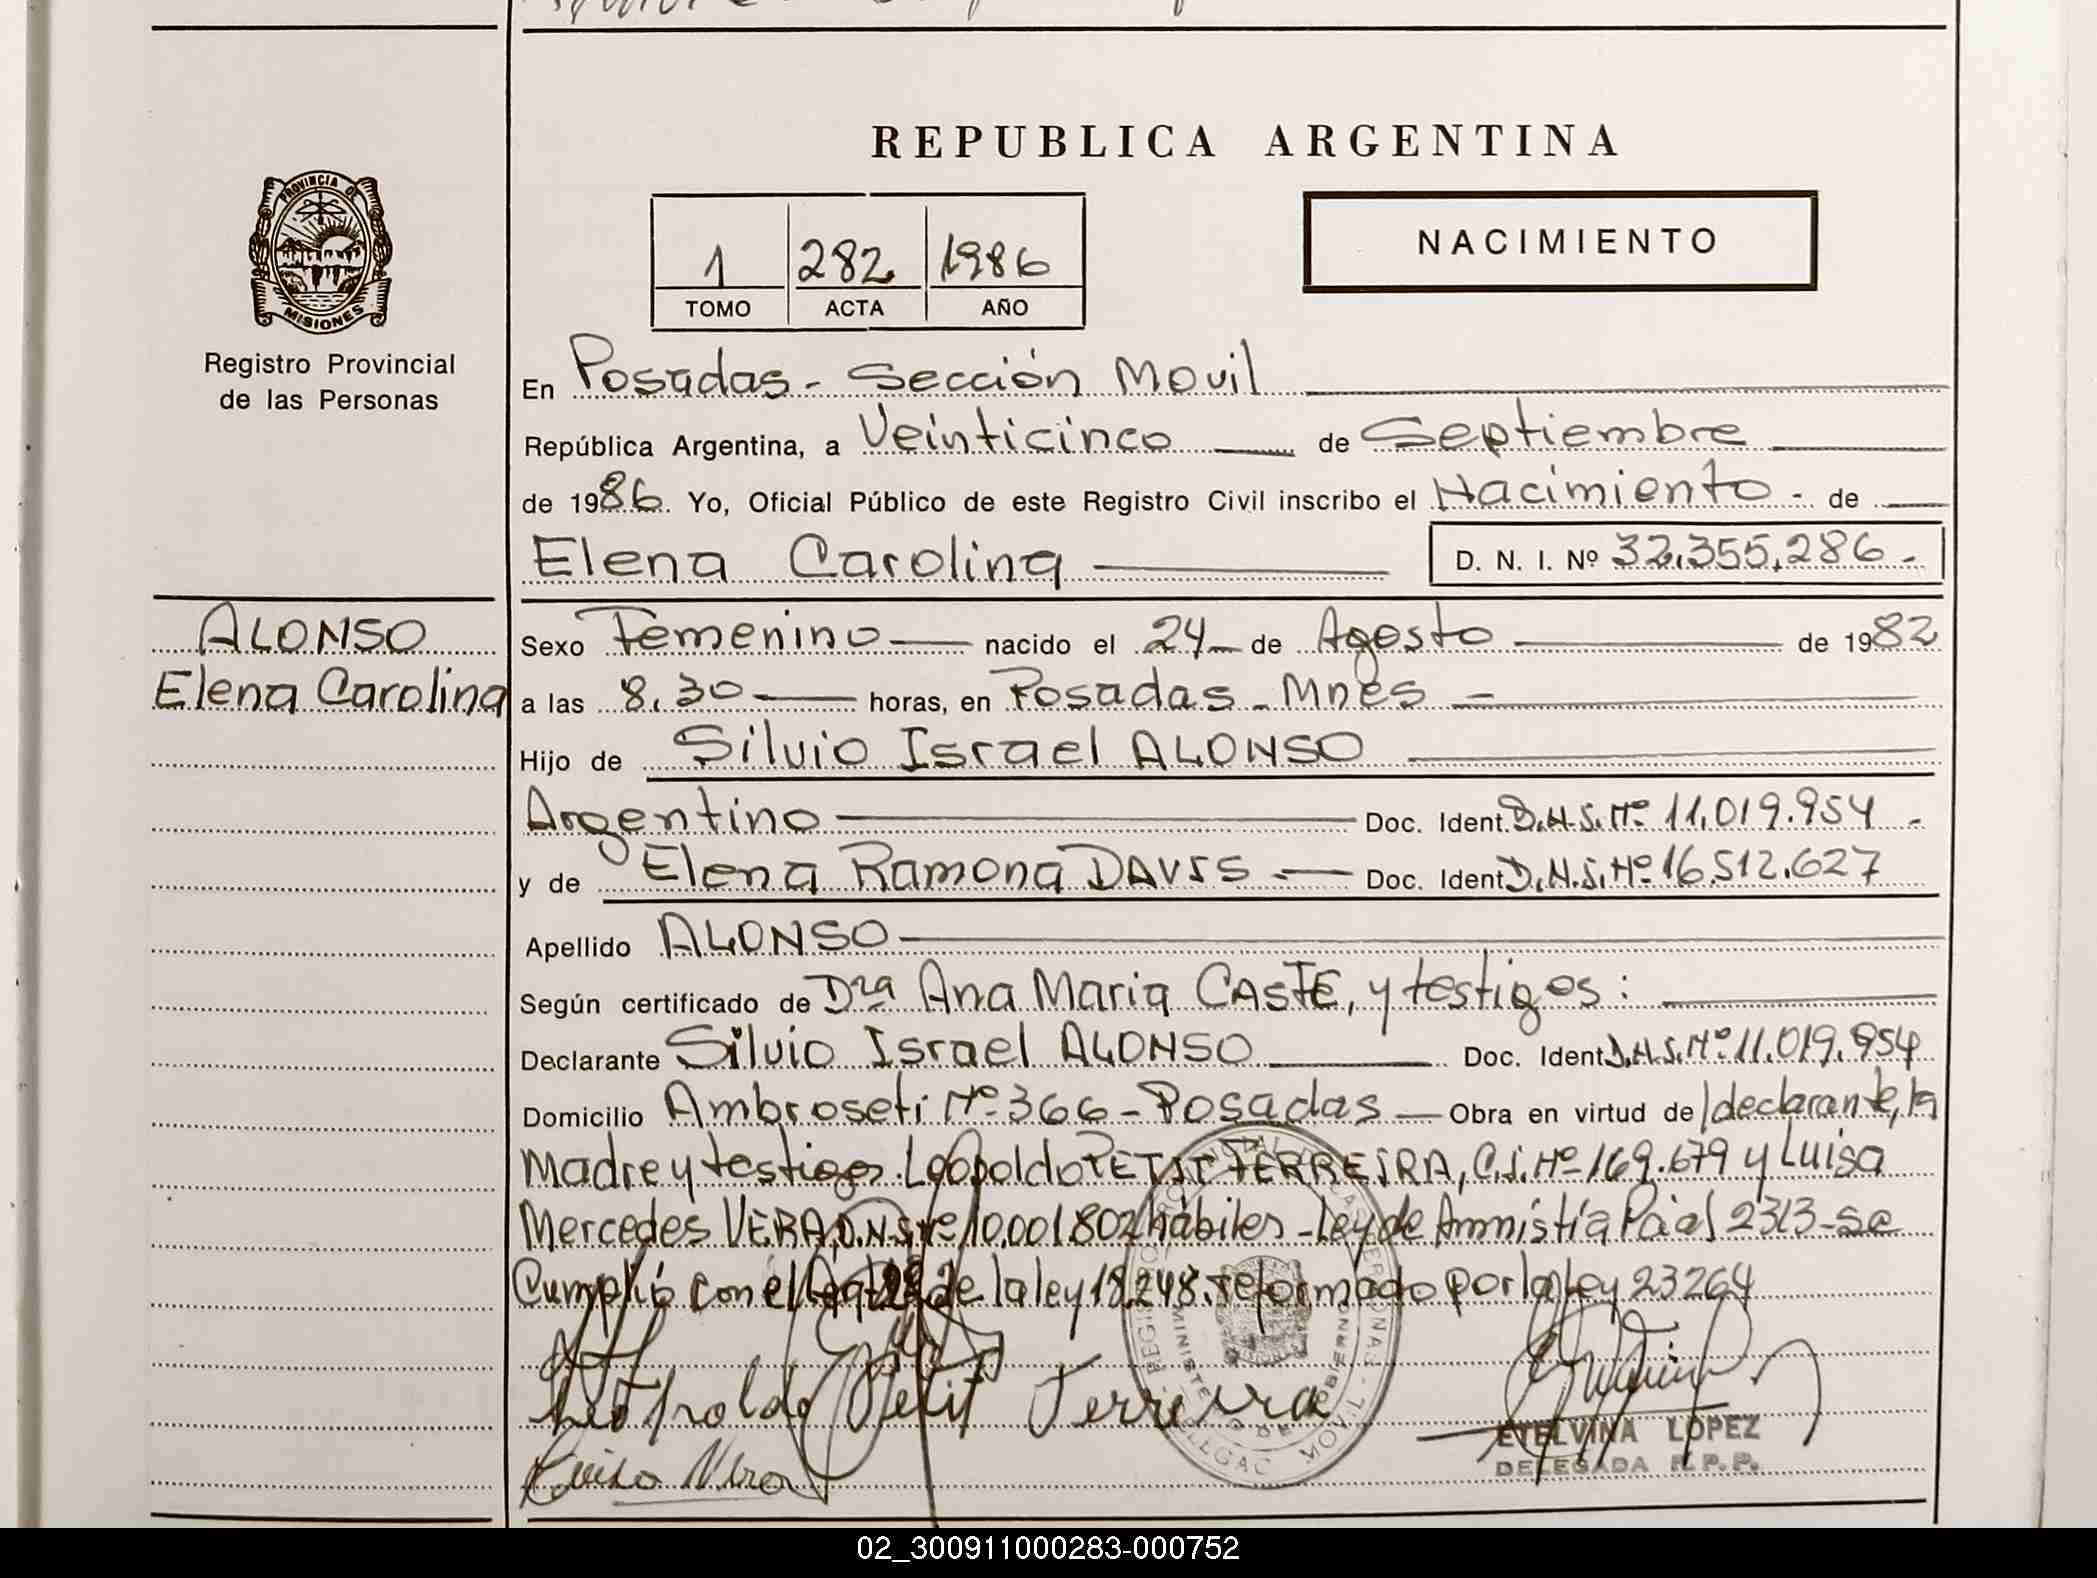 REPUBLICA ARGENTINA
PROVINCIA DE
MISIONES
Registro Provincial
de las Personas
1 282 1986
TOMO ACTA AÑO
NACIMIENTO
En Posadas - Sección Movil
República Argentina, a Veinticinco de Septiembre
de 1986. Yo, Oficial Público de este Registro Civil inscribo el Nacimiento - de
Elena Carolina D. N. I. Nº 32.355.286 -
ALONSO
Elena Carolina
Sexo Femenino nacido el 24 de Agosto de 1982
a las 8.30 horas, en Posadas - Mnes -
Hijo de Silvio Israel ALONSO
Argentino Doc. Ident. D.N.I. Nº 11.019.954 -
y de Elena Ramona DAVIS - Doc. Ident D.N.I. Nº 16.512.627
Apellido ALONSO
Según certificado de Dra Ana Maria CASTE, y testigos:
Declarante Silvio Israel ALONSO Doc. Ident D.N.I. Nº 11.019.954
Domicilio Ambroseti Nº 366 - Posadas - Obra en virtud de declarante, la
Madre y testigos Leopoldo PETIT FERREIRA, C.I. Nº 169.679 y Luisa
Mercedes VERA D.N.I. Nº 10.001.802 hábiles - Ley de Amnistía 2313 - se
Cumplió con el de la ley 18.248. reformado por la Ley 23264
Leopoldo Petit Ferreira
Luisa Vera
ETELVINA LOPEZ
DELEGADA R.P.P.
02_300911000283-000752